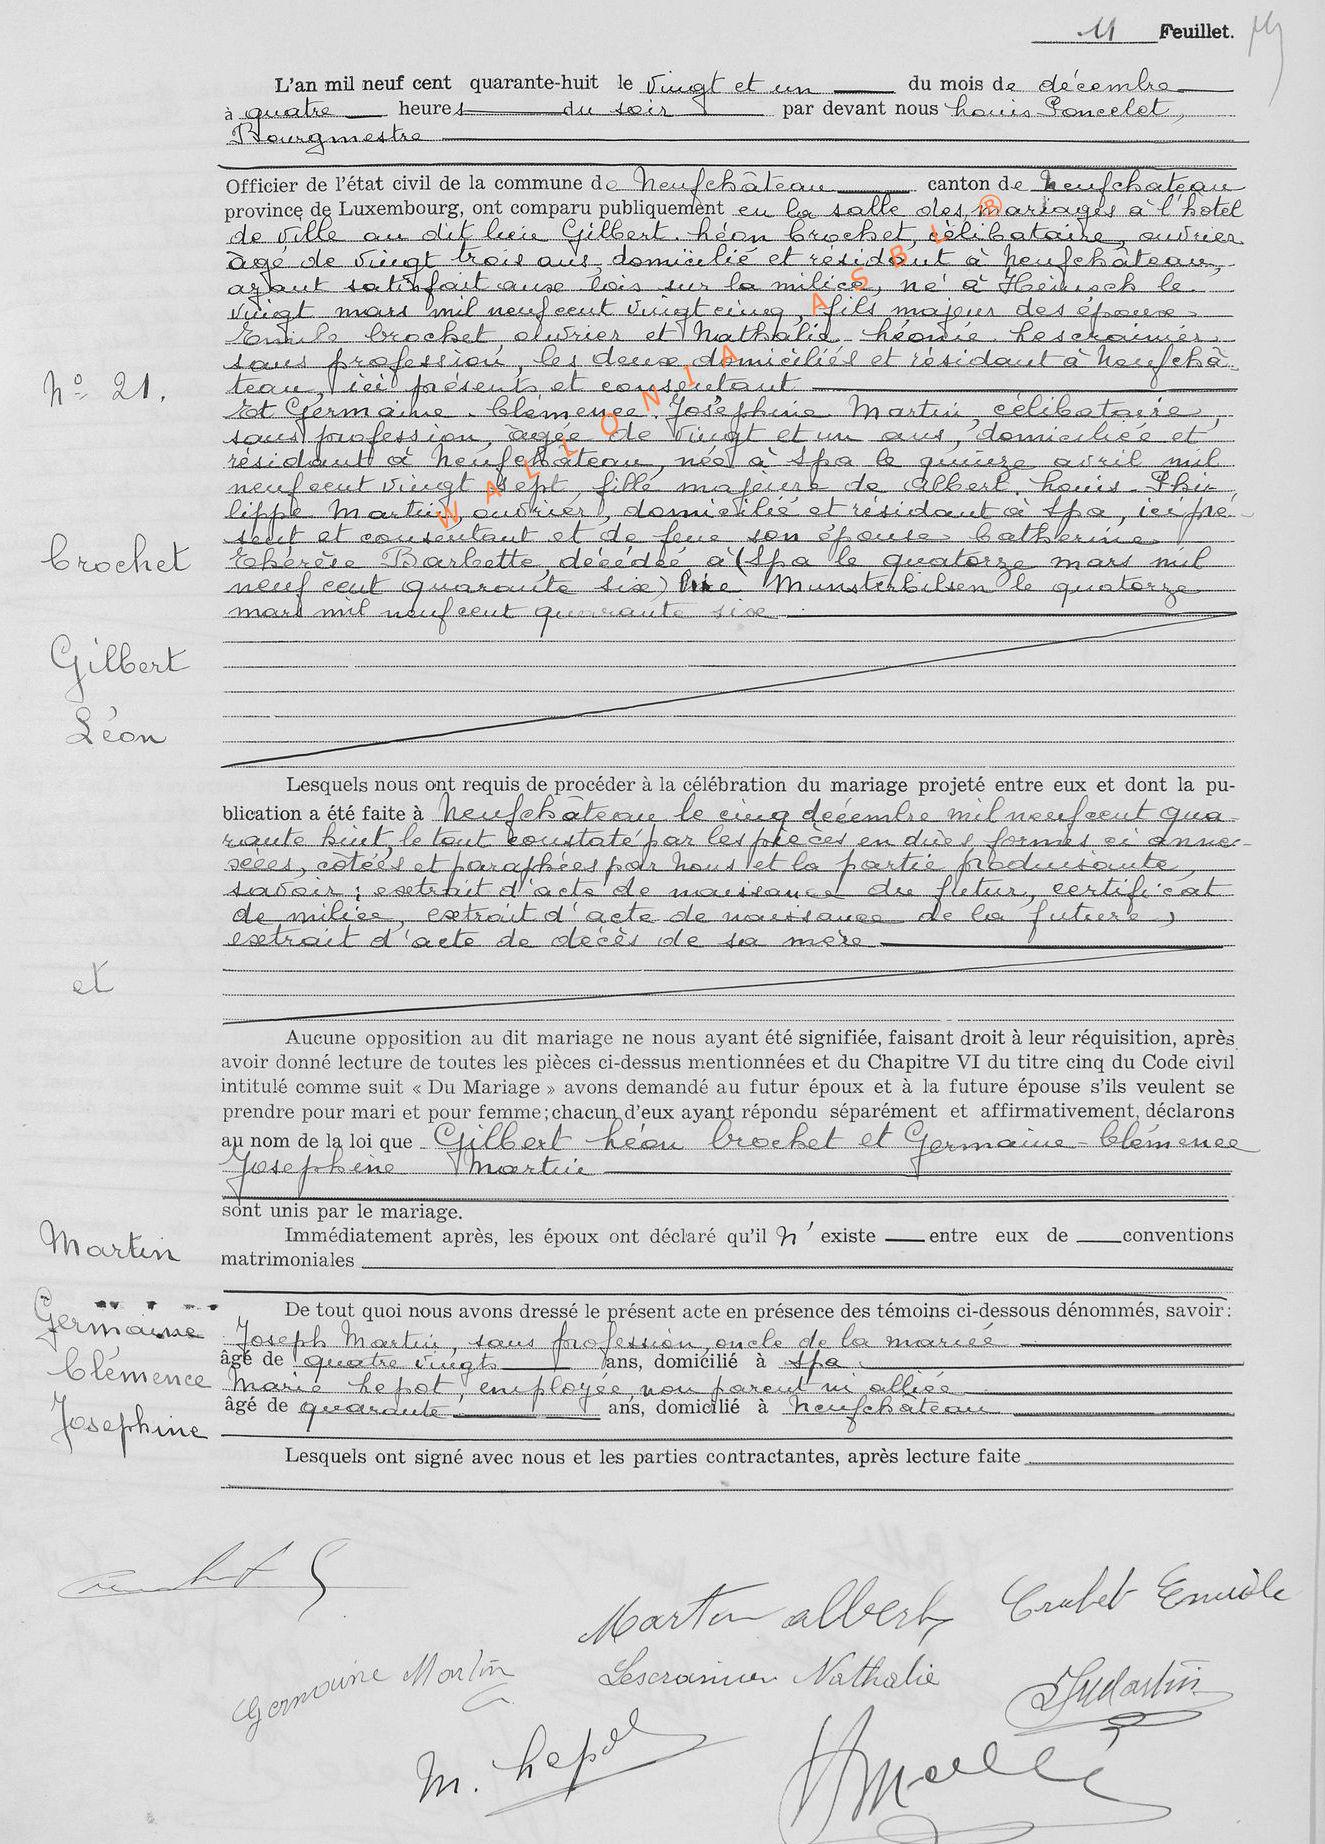 11 Feuillet.
L'an mil neuf cent quarante-huit le vingt et un du mois de décembre
à quatre heures du soir par devant nous Louis Poncelet,
Bourgmestre
Officier de l'état civil de la commune de Neufchâteau canton de Neufchateau
province de Luxembourg, ont comparu publiquement en la salle des mariages à l'hôtel
de ville au dit lieu Gilbert Léon Crochet, célibataire, ouvrier
âgé de vingt trois ans, domicilié et résidant à Neufchâteau,
ayant satisfait aux lois sur la milice, né à Heinsch le
vingt mars mil neuf cent vingt cinq, fils majeur des époux
Emile Crochet, ouvrier et Nathalie Léonie Lescrainier
sans profession, les deux domiciliés et résidant à Neufchâ-
teau, ici présents et consentant
N° 21.
Et Germaine Clémence Joséphine Martin, célibataire,
sans profession, âgée de vingt et un ans, domiciliée et
résidant à Neufchâteau, née à Spa le quinze avril mil
neuf cent vingt sept, fille majeure de Albert Louis Phi-
lippe Martin, ouvrier, domicilié et résidant à Spa, ici pré-
sent et consentant et de feue son épouse Catherine
Thérèse Barbette, décédée à (Spa le quatorze mars mil
neuf cent quarante six) Munsterbilsen le quatorze
mars mil neuf cent quarante six
Crochet
Gilbert
Léon
Lesquels nous ont requis de procéder à la célébration du mariage projeté entre eux et dont la pu-
blication a été faite à Neufchâteau le cinq décembre mil neuf cent qua-
rante huit, le tout constaté par les pièces en dues formes ci anne-
xées, cotées et paraphées par nous et la partie produisante,
savoir: extrait d'acte de naissance du futur, certificat
de milice, extrait d'acte de naissance de la future,
extrait d'acte de décès de sa mère
et
Aucune opposition au dit mariage ne nous ayant été signifiée, faisant droit à leur réquisition, après
avoir donné lecture de toutes les pièces ci-dessus mentionnées et du Chapitre VI du titre cinq du Code civil
intitulé comme suit « Du Mariage » avons demandé au futur époux et à la future épouse s'ils veulent se
prendre pour mari et pour femme; chacun d'eux ayant répondu séparément et affirmativement, déclarons
au nom de la loi que Gilbert Léon Crochet et Germaine Clémence
Josephine Martin
sont unis par le mariage.
Immédiatement après, les époux ont déclaré qu'il n'existe entre eux de conventions
matrimoniales
Martin
Germaine
Clémence
Josephine
De tout quoi nous avons dressé le présent acte en présence des témoins ci-dessous dénommés, savoir:
Joseph Martin, sans profession, oncle de la mariée
âgé de quatre vingts ans, domicilié à Spa
Marie Lepot, employée, non parent ni alliée
âgé de quarante ans, domicilié à Neufchâteau
Lesquels ont signé avec nous et les parties contractantes, après lecture faite
WALLONIA ASBL ®
Martin Albert Crochet Emile
Germaine Martin Lescrainier Nathalie
M. Lepot